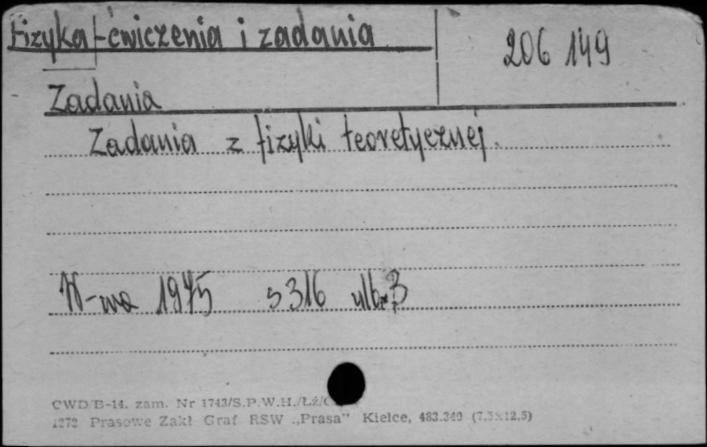 Fizyka-ćwiczenia i zadania
206 149
Zadania
Zadania z fizyki teoretycznej.
W-wa 1975 s 316 ulb. 3
CWD/B-14. zam. Nr 1743/S.P.W.H./Łź/
1272 Prasowe Zakł Graf RSW „Prasa” Kielce, 483.340 (7.5x12.5)